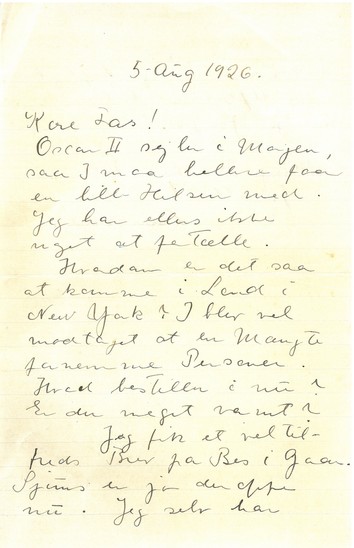 5-Aug 1926.
Kære Fas!
Oscar II sejler i Morgen,
saa I maa hellere faa
en lille Hilsen med.
Jeg har ellers ikke
noget at fortælle.
Hvordan er det saa
at komme i Land i
New York? I blev vel
modtaget af en Mængde
fornemme Personer.
Hvad bestiller i nu?
Er der meget varmt?
Jeg fik et veltil-
freds Brev fra Bes i Gaar.
er jo deroppe
nu. Jeg selv har